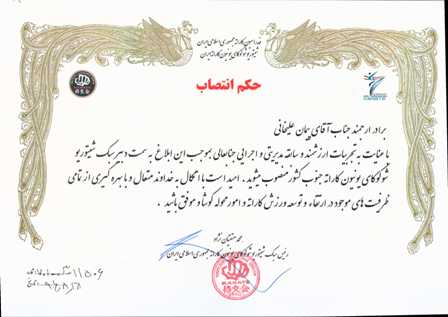 فدراسیون کاراته جمهوری اسلامی ایران
شیتوریو شوکوکای یونیون کاراته ایران
حکم انتصاب
KARATE
برادر ارجمند جناب آقای پیمان علیخانی
با عنایت به تجربیات ارزشمند و سابقه مدیریتی و اجرایی جنابعالی بموجب این ابلاغ به سمت دبیر سبک شیتوریو
شوکوکای یونیون کاراته جنوب کشور منصوب میشوید . امید است با اتکال به خداوند متعال و با بهره گیری از تمامی
ظرفیت های موجود در ارتقاء و توسعه ورزش کاراته و امور محوله کوشا و موفق باشید .
رئیس سبک شیتوریو شوکوکای یونیون کاراته جمهوری اسلامی ایران
KARATE